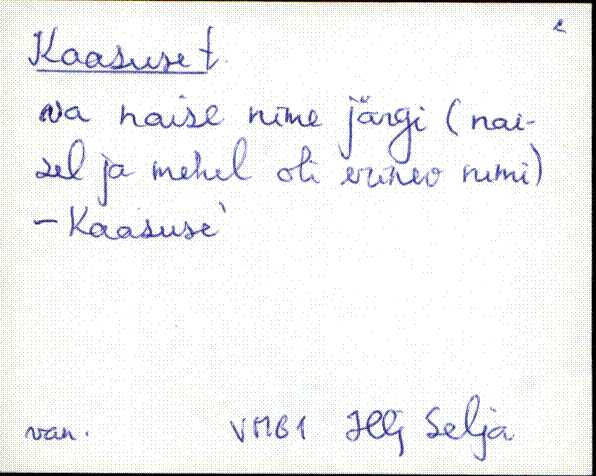 Kaasuset
va naise nime järgi (nai-
sel ja mehel oli erinev nimi)
– Kaasuse'
van. VMB1 Selja